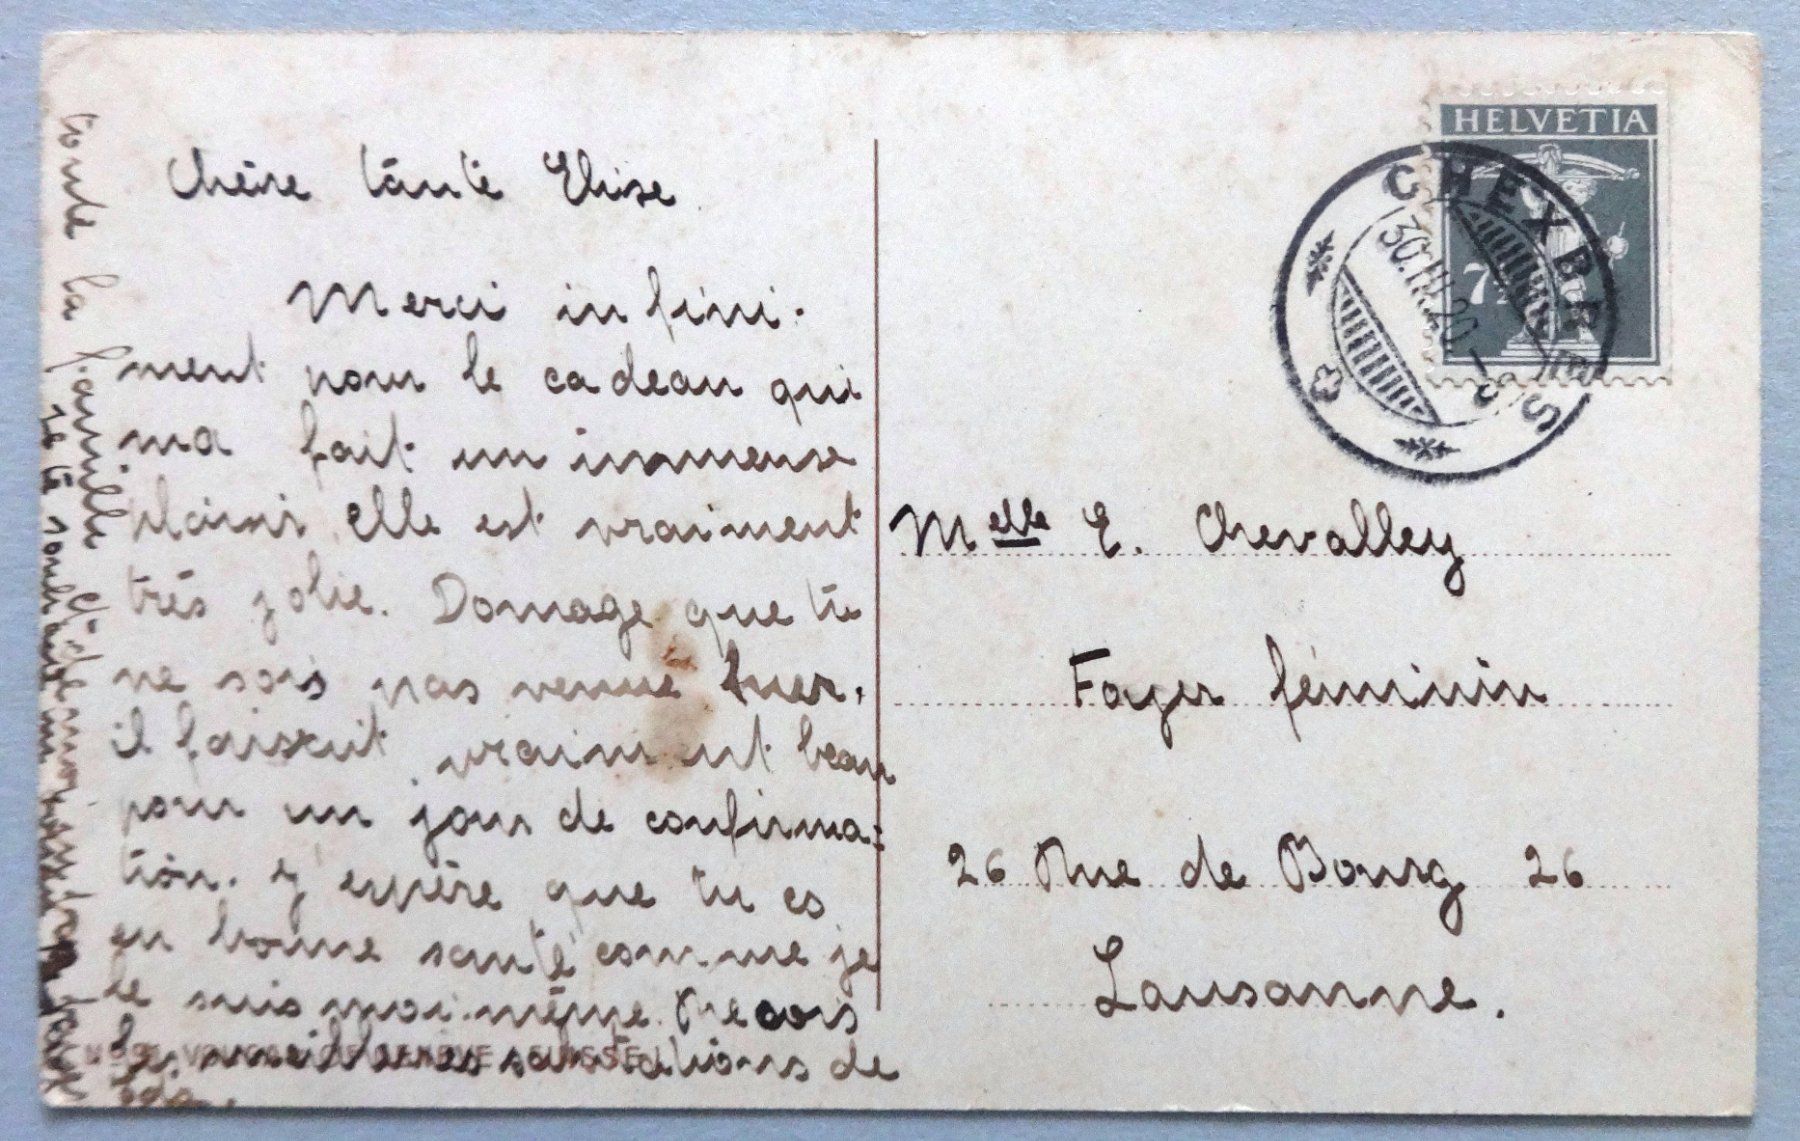 Chère tânte Elise
Merci infini-
ment pour le cadeau qui
ma fait un immense
plaisir elle est vraiment
très jolie. Domage que tu
ne sois pas venue hier,
il faisait vraiment beau
pour un jour de confirma=
tion. y' espère que tu es
en bonne santé comme je
le suis moi-même. Recois
les meilleures salutations de
toute la famille et de
Je te souhaite
HELVETIA
7½
CHEXBRES
30.III.20.
Melle E. Chevalley
Foyer féminin
26 Rue de Bourg 26
Lausanne.